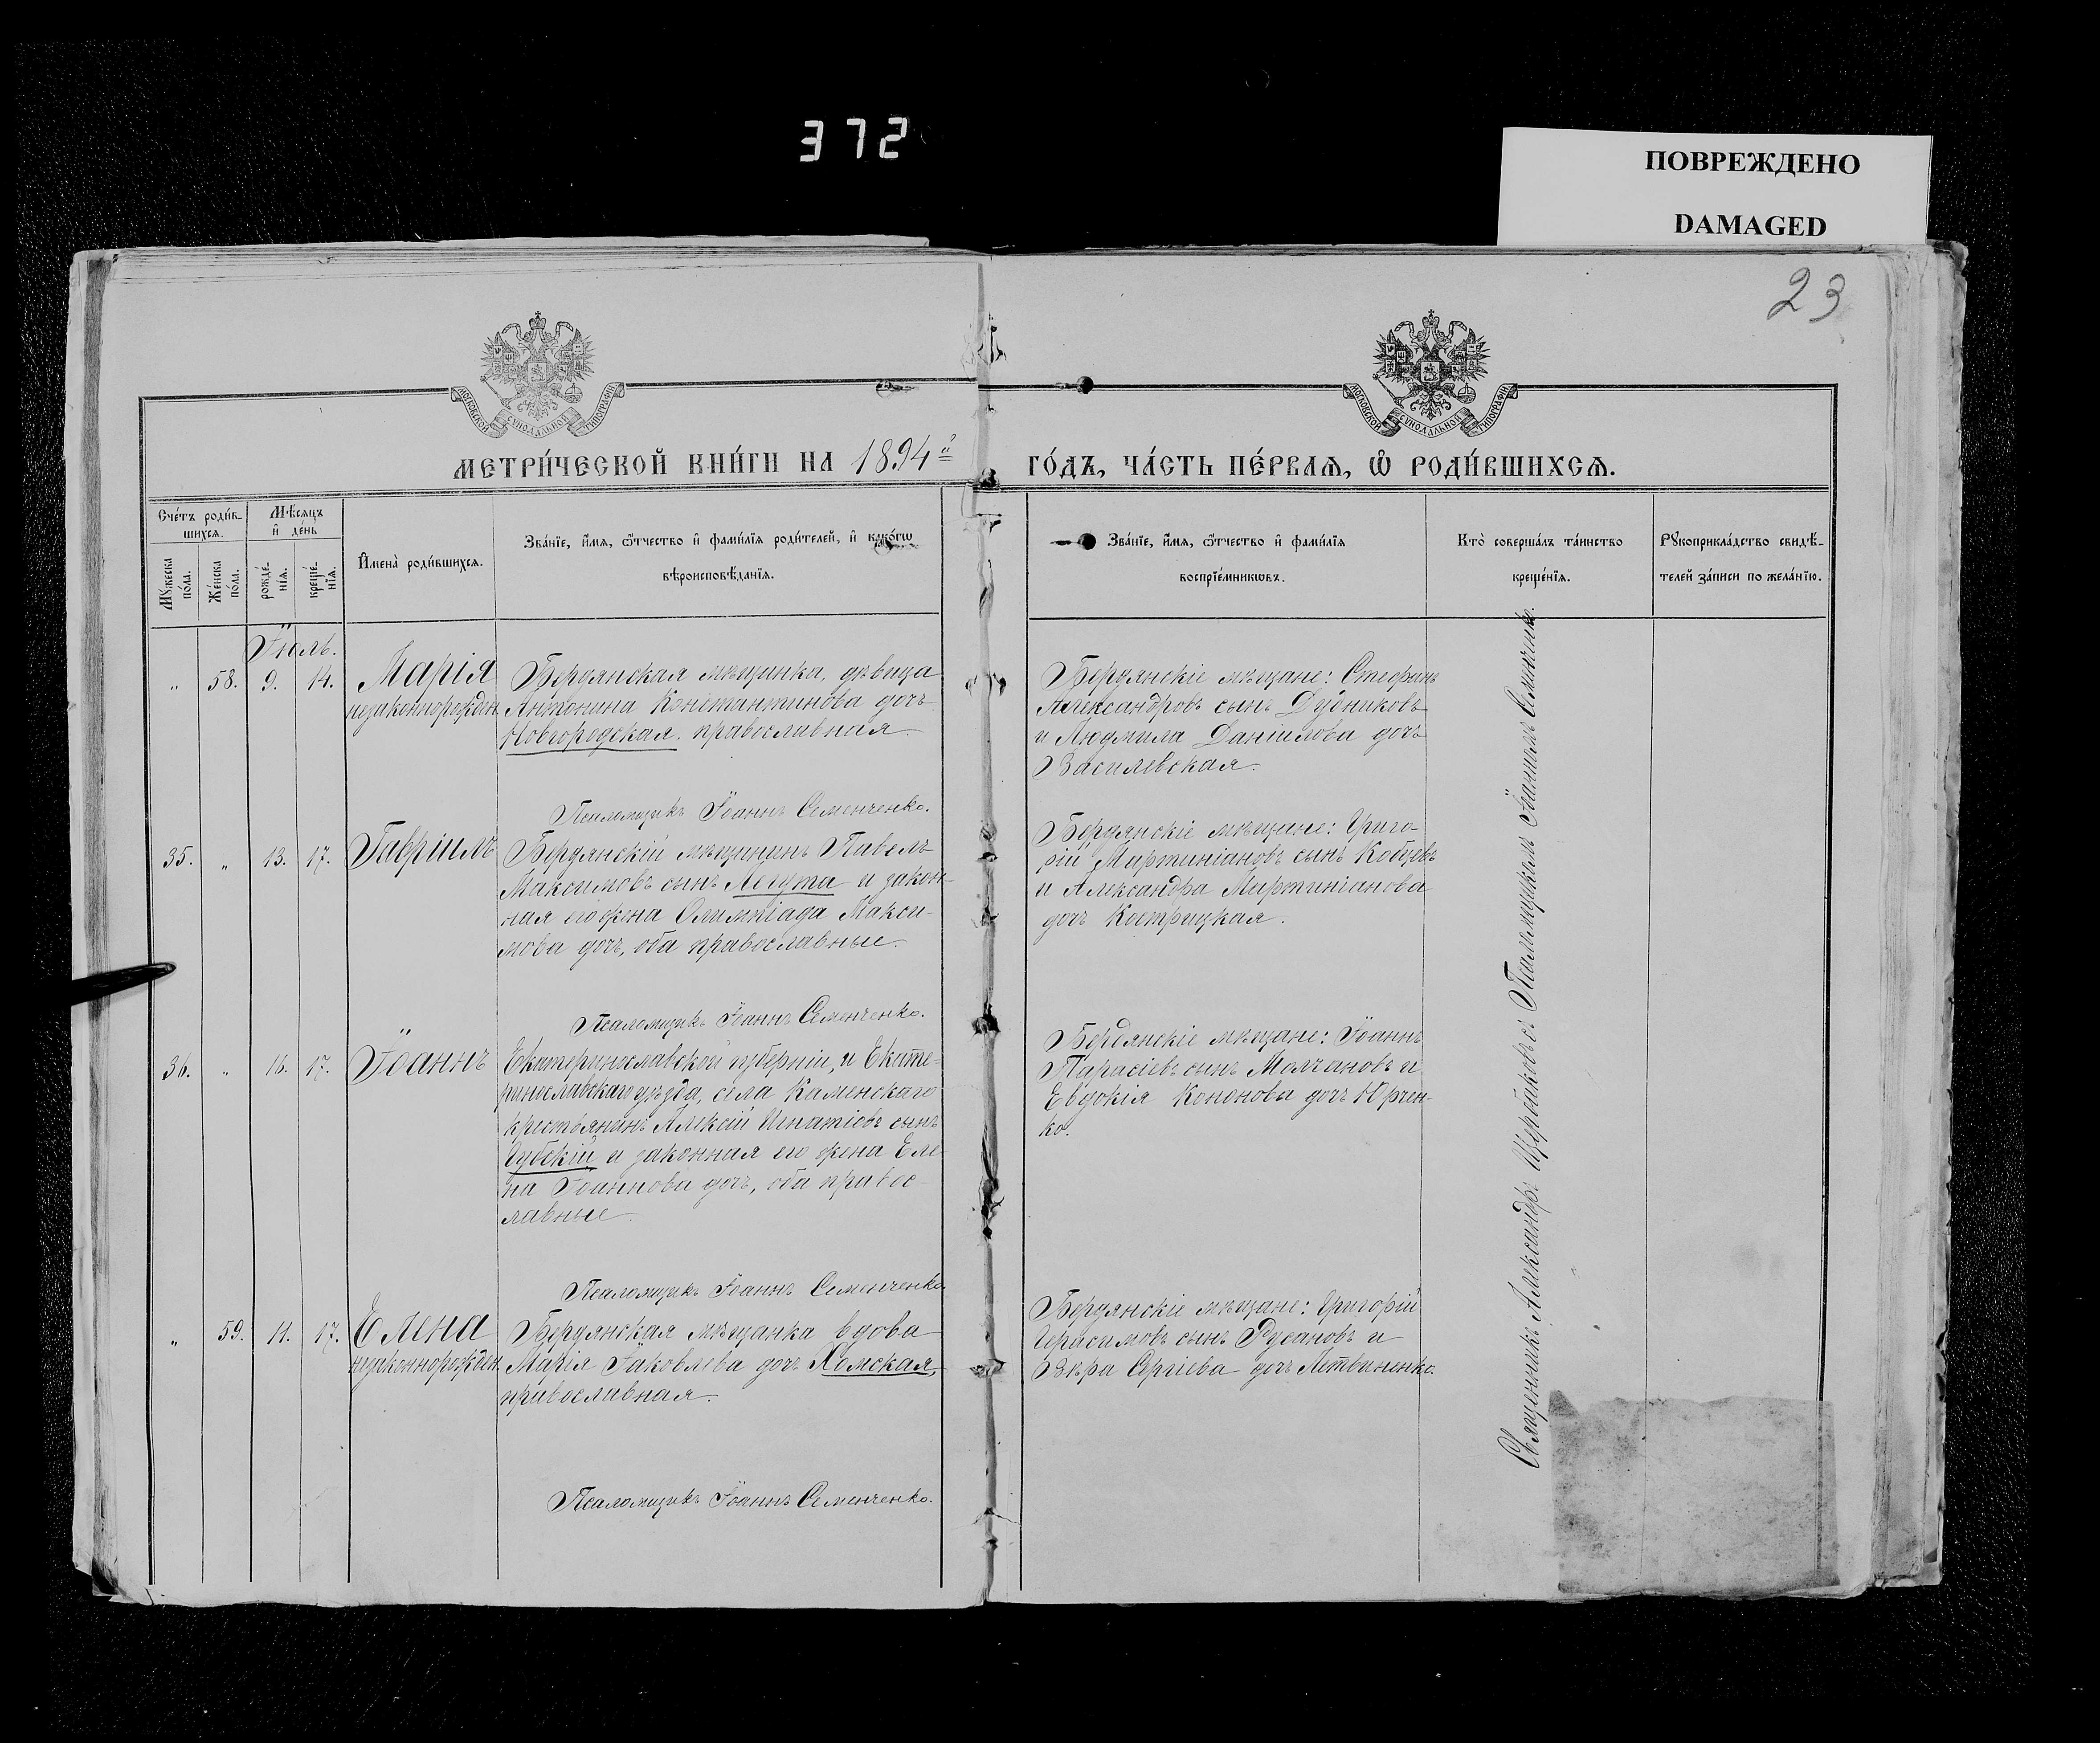 372
ПОВРЕЖДЕНО
DAMAGED
23
МОСКОВСКОЙ СѴНОДАЛЬНОЙ ТИПОГРАФІИ
МОСКОВСКОЙ СѴНОДАЛЬНОЙ ТИПОГРАФІИ
МЕТРИ́ЧЕСКОЙ КНИ́ГИ НА 1894й
ГО́ДЪ, ЧА́СТЬ ПЕ́РВАѦ, Ѡ҆ РОДИ́ВШИХСѦ.
Сче́тъ роди́в-
шихсѧ.
Мꙋ́жеска по́ла.
Же́нска по́ла.
Мѣ́сѧцъ
и҆ де́нь
рожде́-
нїѧ.
креще́-
нїѧ.
И҆мена̀ роди́вшихсѧ.
Зва́нїе, и҆́мѧ, ѻ҆́тчество и҆ фами́лїѧ роди́телей, и҆ како́гѡ
вѣроисповѣ́данїѧ.
Зва́нїе, и҆́мѧ, ѻ҆́тчество и҆ фами́лїѧ
воспрїе́мникѡвъ.
Кто̀ соверша́лъ та́инство
креще́нїѧ.
Рꙋкоприкла́дство свидѣ́-
телей за́писи по жела́нїю.
Іюль.
„ 58. 9. 14. Марія
незаконнорожден.
Бердянская мѣщанка, дѣвица
Антонина Константинова дочь
Новгородская. православная
Псаломщикъ Іоаннъ Семенченко.
Бердянскіе мѣщане: Стефанъ
Александровъ сынъ Дудниковъ
и Людмила Даніилова дочь
Василевская.
35. „ 13. 17. Гавріилъ
Бердянскій мѣщанинъ Павелъ
Максимовъ сынъ Легута и закон-
ная его жена Олимпіада Макси-
мова дочь, оба православные.
Псаломщикъ Іоаннъ Семенченко.
Бердянскіе мѣщане: Григо-
рій Мартиніановъ сынъ Кобзевъ
и Александра Мартиніанова
дочь Кострицкая.
36. „ 16. 17. Іоаннъ
Екатеринославской губерніи, и Екате-
ринославскаго уѣзда, села Каменскаго
крестьянинъ Алексій Игнатіевъ сынъ
Губскій и законная его жена Еле-
на Іоаннова дочь, оба правос-
лавные.
Псаломщикъ Іоаннъ Семенченко.
Бердянскіе мѣщане: Іоаннъ
Тарасіевъ сынъ Молчановъ и
Евдокія Кононова дочь Юрчен-
ко.
„ 59. 11. 17. Елена
незаконнорожден.
Бердянская мѣщанка вдова
Марія Іаковлева дочь Хомская,
православная.
Псаломщикъ Іоаннъ Семенченко.
Бердянскіе мѣщане: Григорій
Герасимовъ сынъ Русановъ и
Вѣра Сергіева дочь Литвиненко.
Священникъ Александръ Щербаковъ съ Псаломщикомъ Іоанномъ Семенченко.